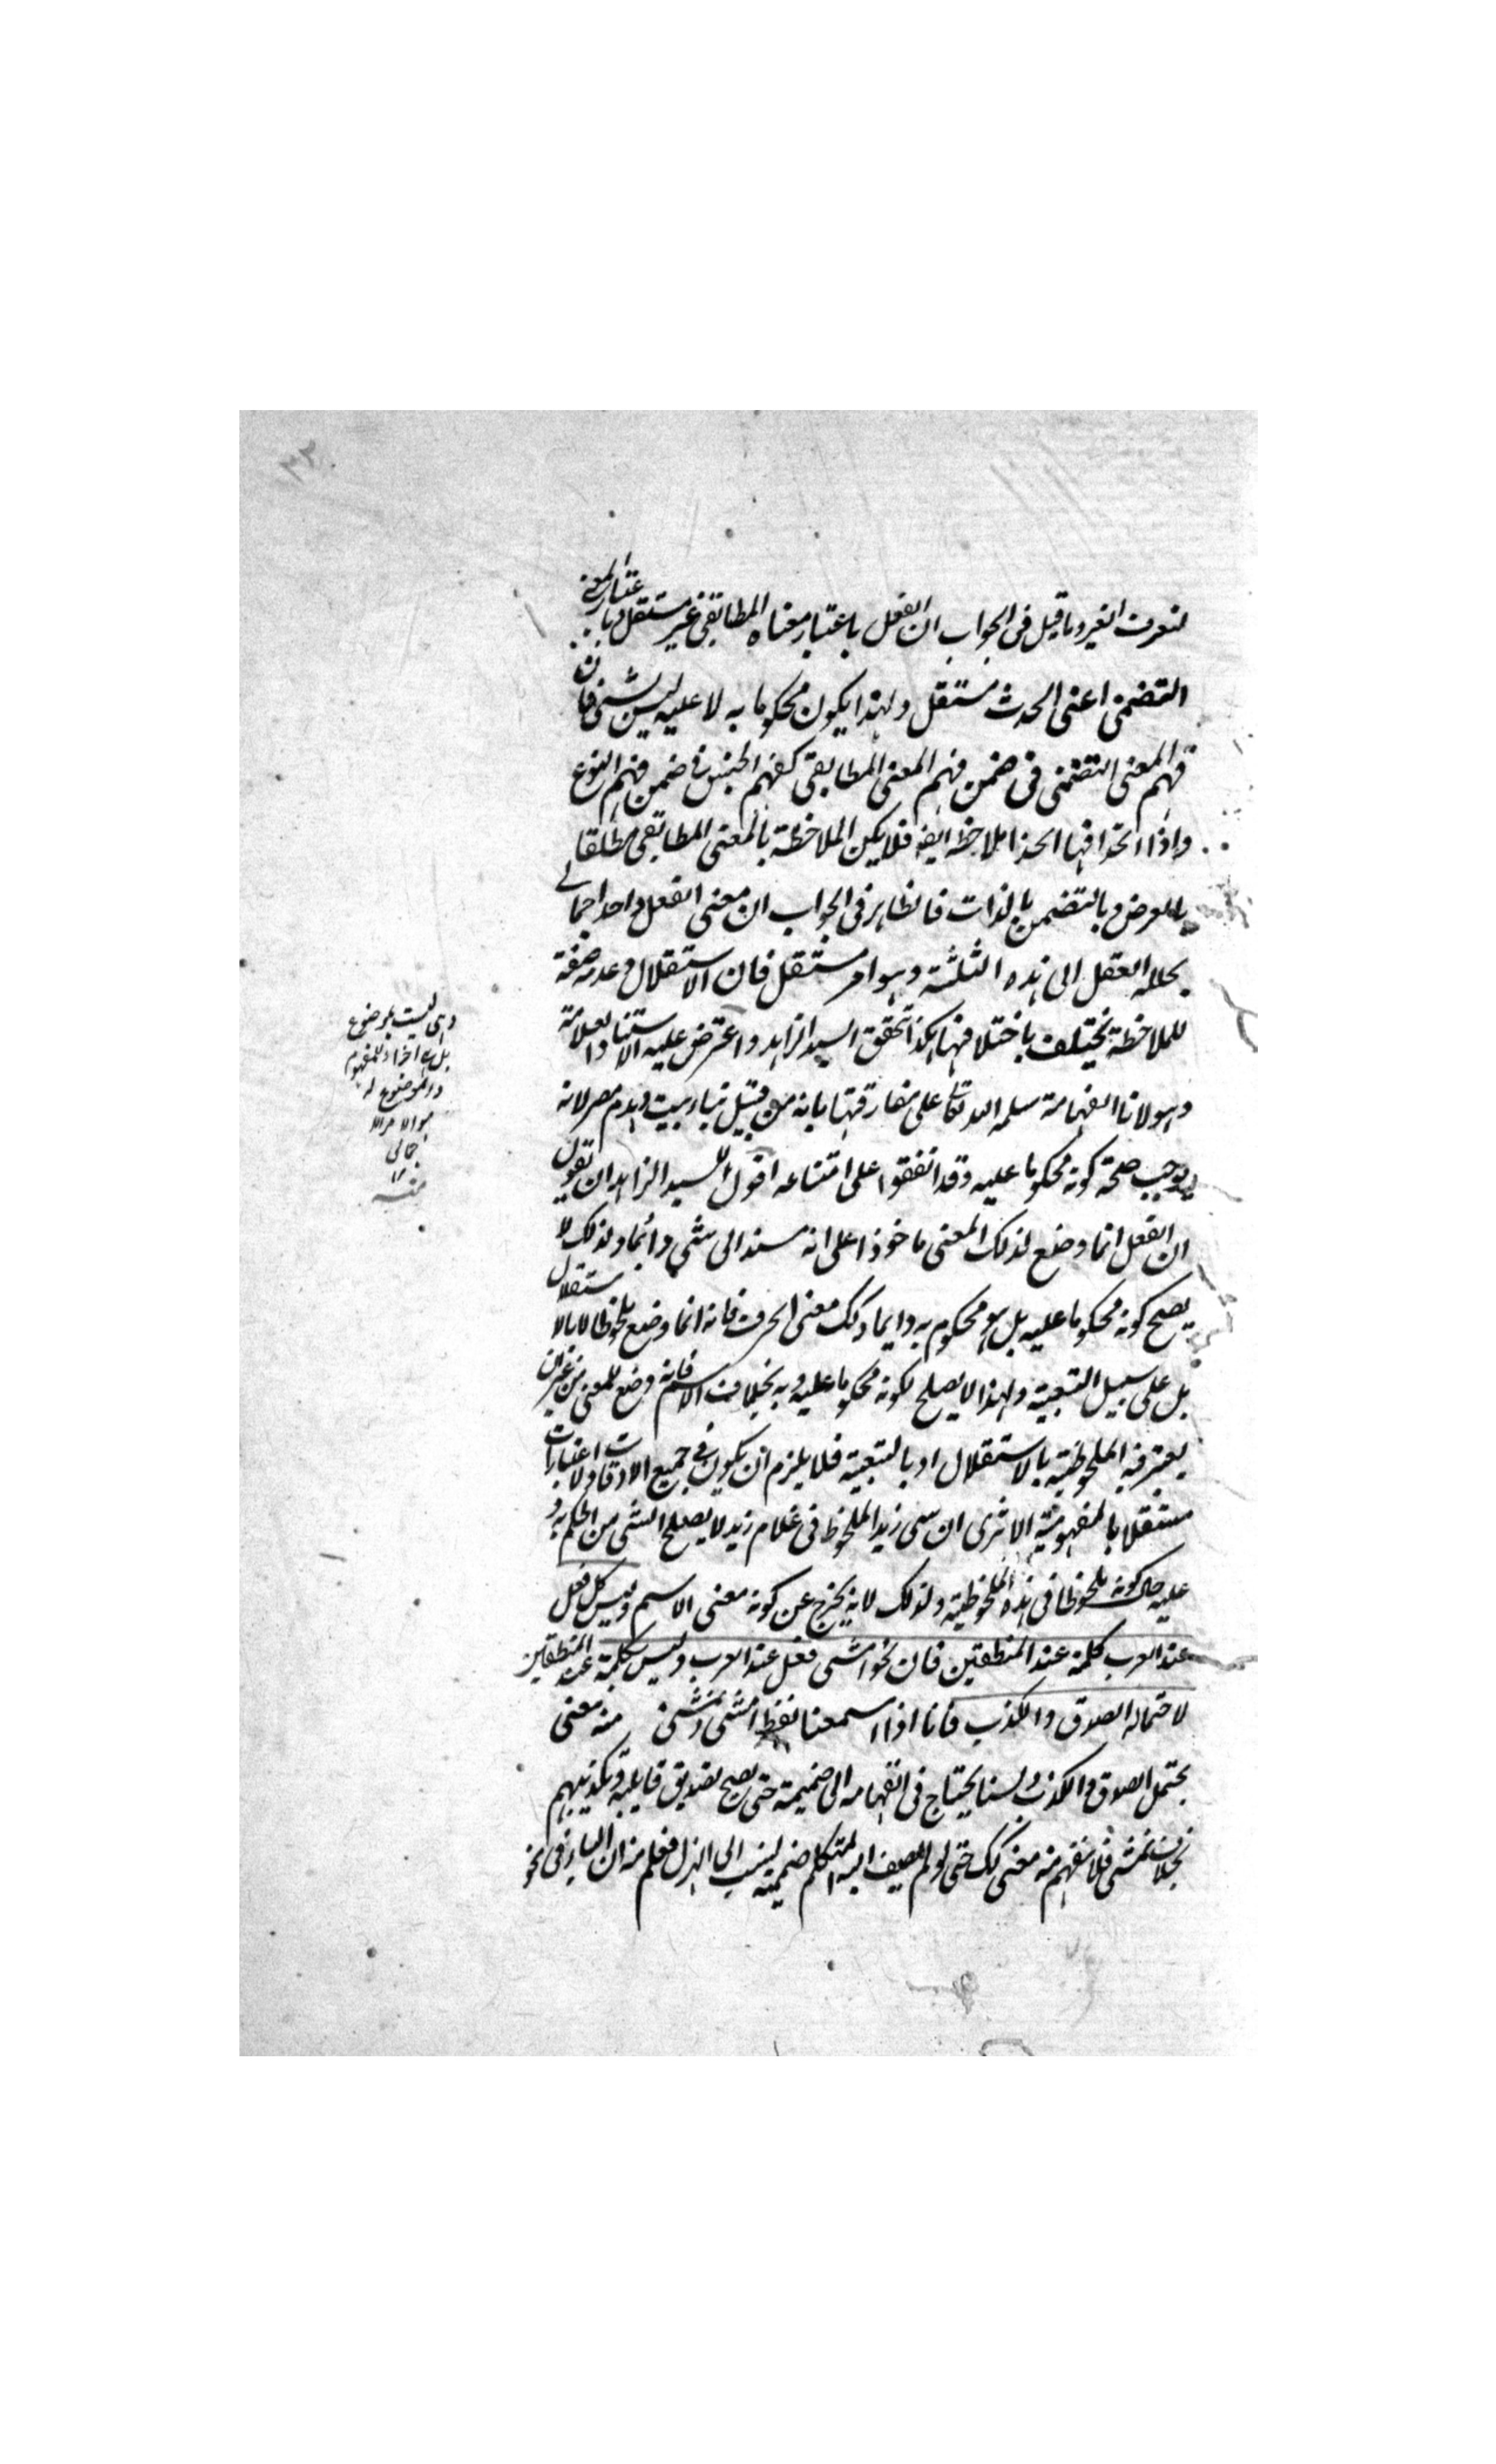 لتعرف الغير وما قيل فى الجواب ان الفعل باعتبار معناه المطابقى غير مستقل وباعتبار المعنى
التضمنى اعنى الحدث مستقل ولهذا يكون محكوما به لا عليه ليس بشئ فان
فهم المعنى التضمنى فى ضمن فهم المعنى المطابقى كفهم الجنس فى ضمن فهم النوع
واذا اتحدا فهما اتحدا ملاحظة ايضه فلا يكن الملاحظة بالمعنى المطابقى مطلقا
بالعرض وبالتضمن بالذات فالظاهر فى الجواب ان معنى الفعل واحد اجمالى
يحلله العقل الى هذه الثلثة وهو امر مستقل فان الاستقلال وعدمه صفة
للملاحظة يختلف باختلافها هكذا تحقق السيد الزاهد واعترض عليه الاستاذ العلامة
وهو مولانا الفهامة سلمه الله تعالى على مفارقتها بانه من قبيل بناء بيت وهدم مصر لانه
يوجب صحة كونه محكوما عليه وقد اتفقوا على امتناعه اقول للسيد الزاهد ان تقول
ان الفعل انما وضع لذلك المعنى ماخوذا على انه مسند الى شئ دائما ولذلك لا
يصح كونه محكوما عليه بل هو محكوم به دايما وكك معنى الحرف فانه انما وضع ملحوظا لا بالاستقلال
بل على سبيل التبعية ولهذا لا يصلح لكونه محكوما عليه وبه بخلاف الاسم فانه وضع للمعنى من غير ان
يعتبر فيه الملحوظية بالاستقلال او بالتبعية فلا يلزم ان يكون فى جميع الاوقات والاعتبارات
مستقلا بالمفهومية الا ترى ان سمى زيد الملحوظ فى غلام زيد لا يصلح لشئ من الحكم به و
عليه حال كونه ملحوظا فى هذه الملحوظية ولذلك لا يخرج عن كونه معنى الاسم وليس كل فعل
عند العرب كلمة عند المنطقين فان نحو امشى فعل عند العرب وليس بكلمة عند المنطقين
لاحتماله الصدق والكذب فانا اذا سمعنا لفظ امشى ونمشى منه معنى
يحتمل الصدق والكذب ولسنا يحتاج فى انفهامه الى ضميمة حتى يصح تصديق قايليه وتكذيبهم
بخلاف يمشى فلا نفهم منه معنى كك حتى لو لم يضيف اليه المتكلم ضميمة لينسب الى الهزل فعلم منه ان الهمزة فى نحو
وهى ليست بموضوع
بل هى افراد للمفهوم
والموضوع له
هو الامر الا
جمالى
١٢
منه
٣٢